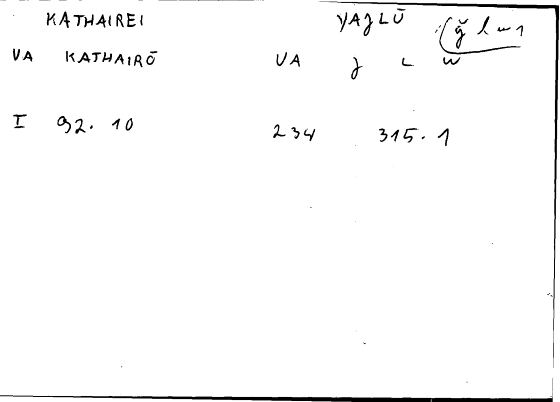 KATHAIREI YAJLŪ (ǧ l w 1
VA KATHAIRŌ VA J L W
I 92. 10 234 315. 1